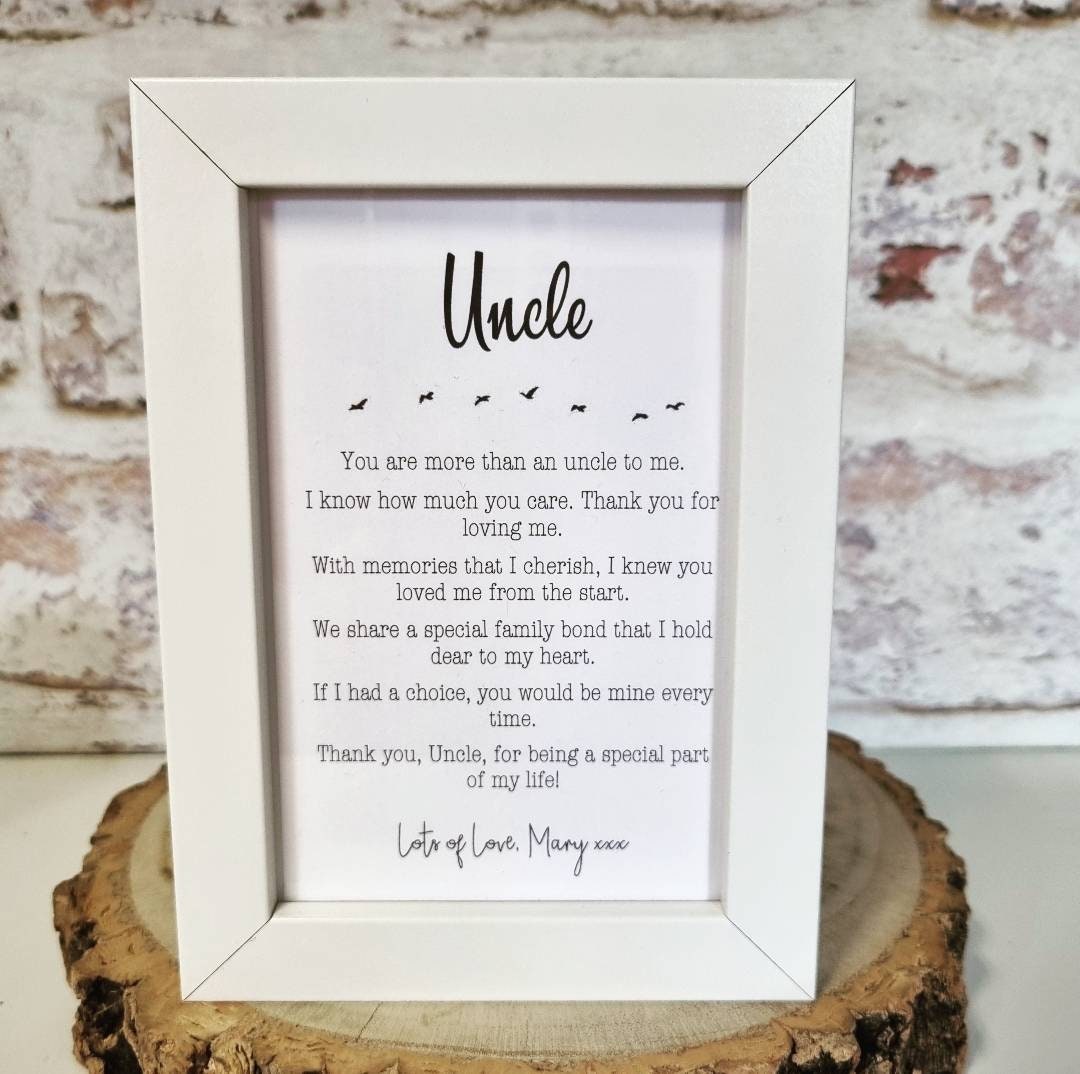 Uncle
You are more than an uncle to me.
I know how much you care. Thank you for
loving me.
With memories that I cherish, I knew you
loved me from the start.
We share a special family bond that I hold
dear to my heart.
If I had a choice, you would be mine every
time.
Thank you, Uncle, for being a special part
of my life!
Lots of Love, Mary xxx